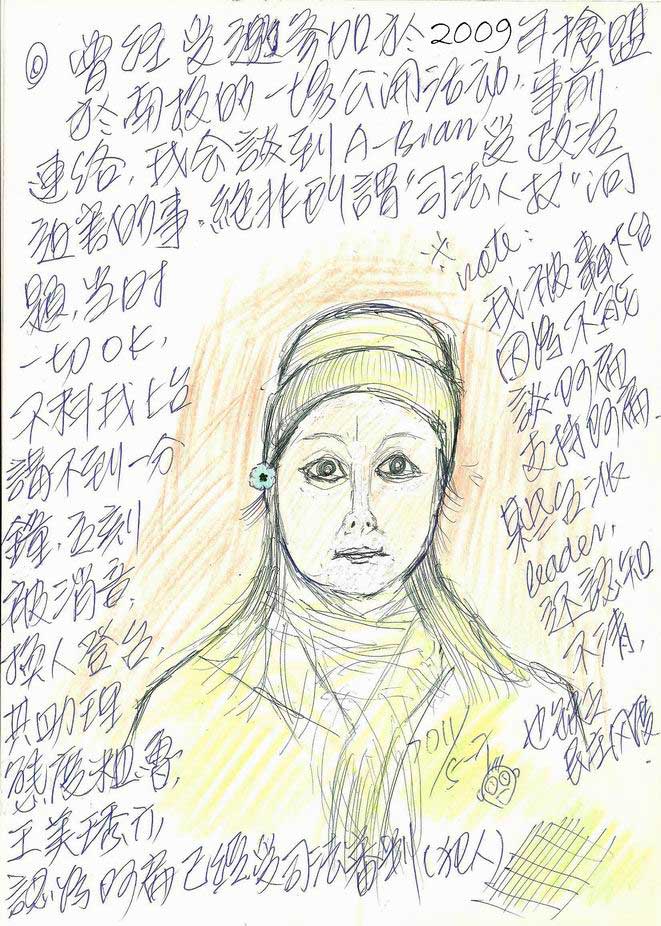 曾經受邀參加於2009年搶盟
於南投的一場公開活動,事前
連絡,我会談到A-Bian受政治
迫害的事.絕非所謂"司法人权"问
題,当时
一切OK,
不料我上台
講不到一分
鐘,立刻
被消音,
換人登台,
其助理
態度粗魯,
王美琇亦
認為阿扁已經受司法審判(犯人)
※note:
我被轟下台
因為不能
談阿扁
支持阿扁.
某些台派
leader,
还認知
不清,
也缺乏
民主风度
2011/
5-7